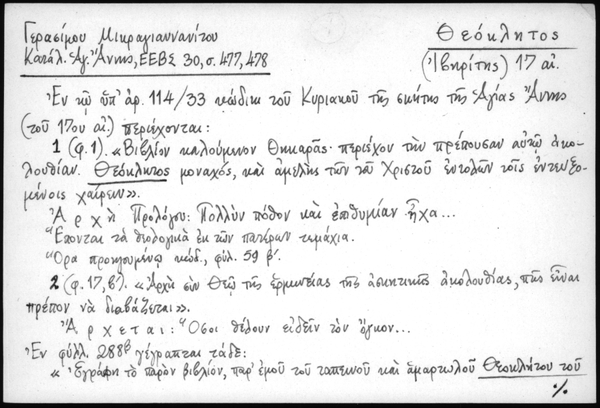 Γερασίμου Μικραγιαννανίτου
Θεόκλητος
Κατάλ. Ἁγ. Ἄννης, ΕΕΒΣ 30, σ. 477, 478
(Ἰβηρίτης) 17 αἰ.
Ἐν τῷ ὑπ' ἀρ. 114/33 κώδικι τοῦ Κυριακοῦ τῆς σκήτης τῆς Ἁγίας Ἄννης
(τοῦ 17ου αἰ.) περιέχονται:
1 (φ. 1). «Βιβλίον καλούμενον Θηκαρᾶς· περιέχον τὴν πρέπουσαν αὐτῷ ἀκο-
λουθίαν. Θεόκλητος μοναχός, καὶ ἀμελὴς τῶν τοῦ Χριστοῦ ἐντολῶν τοῖς ἐντευξο-
μένοις χαίρειν».
Ἀρχὴ Προλόγου: Πολλὺν πόθον καὶ ἐπιθυμίαν ἦχα...
Ἕπονται τὰ θεολογικὰ ἐκ τῶν πατέρων τεμάχια.
Ὅρα προηγουμένῳ κώδ., φύλ. 59 β'.
2 (φ. 17,β'). «Ἀρχὴ σὺν Θεῷ τῆς ἑρμηνείας τῆς ἀσκητικῆς ἀκολουθίας, πῆς εἶναι
πρέπον νὰ διαβάζεται».
Ἄρχεται: Ὅσοι θέλουν εἰδεῖν τὸν ὄγκον...
Ἐν φύλλ. 288β γέγραπται τάδε:
«Ἐγράφη τὸ παρὸν βιβλίον, παρ' ἐμοῦ τοῦ ταπεινοῦ καὶ ἁμαρτωλοῦ Θεοκλήτου τοῦ
%